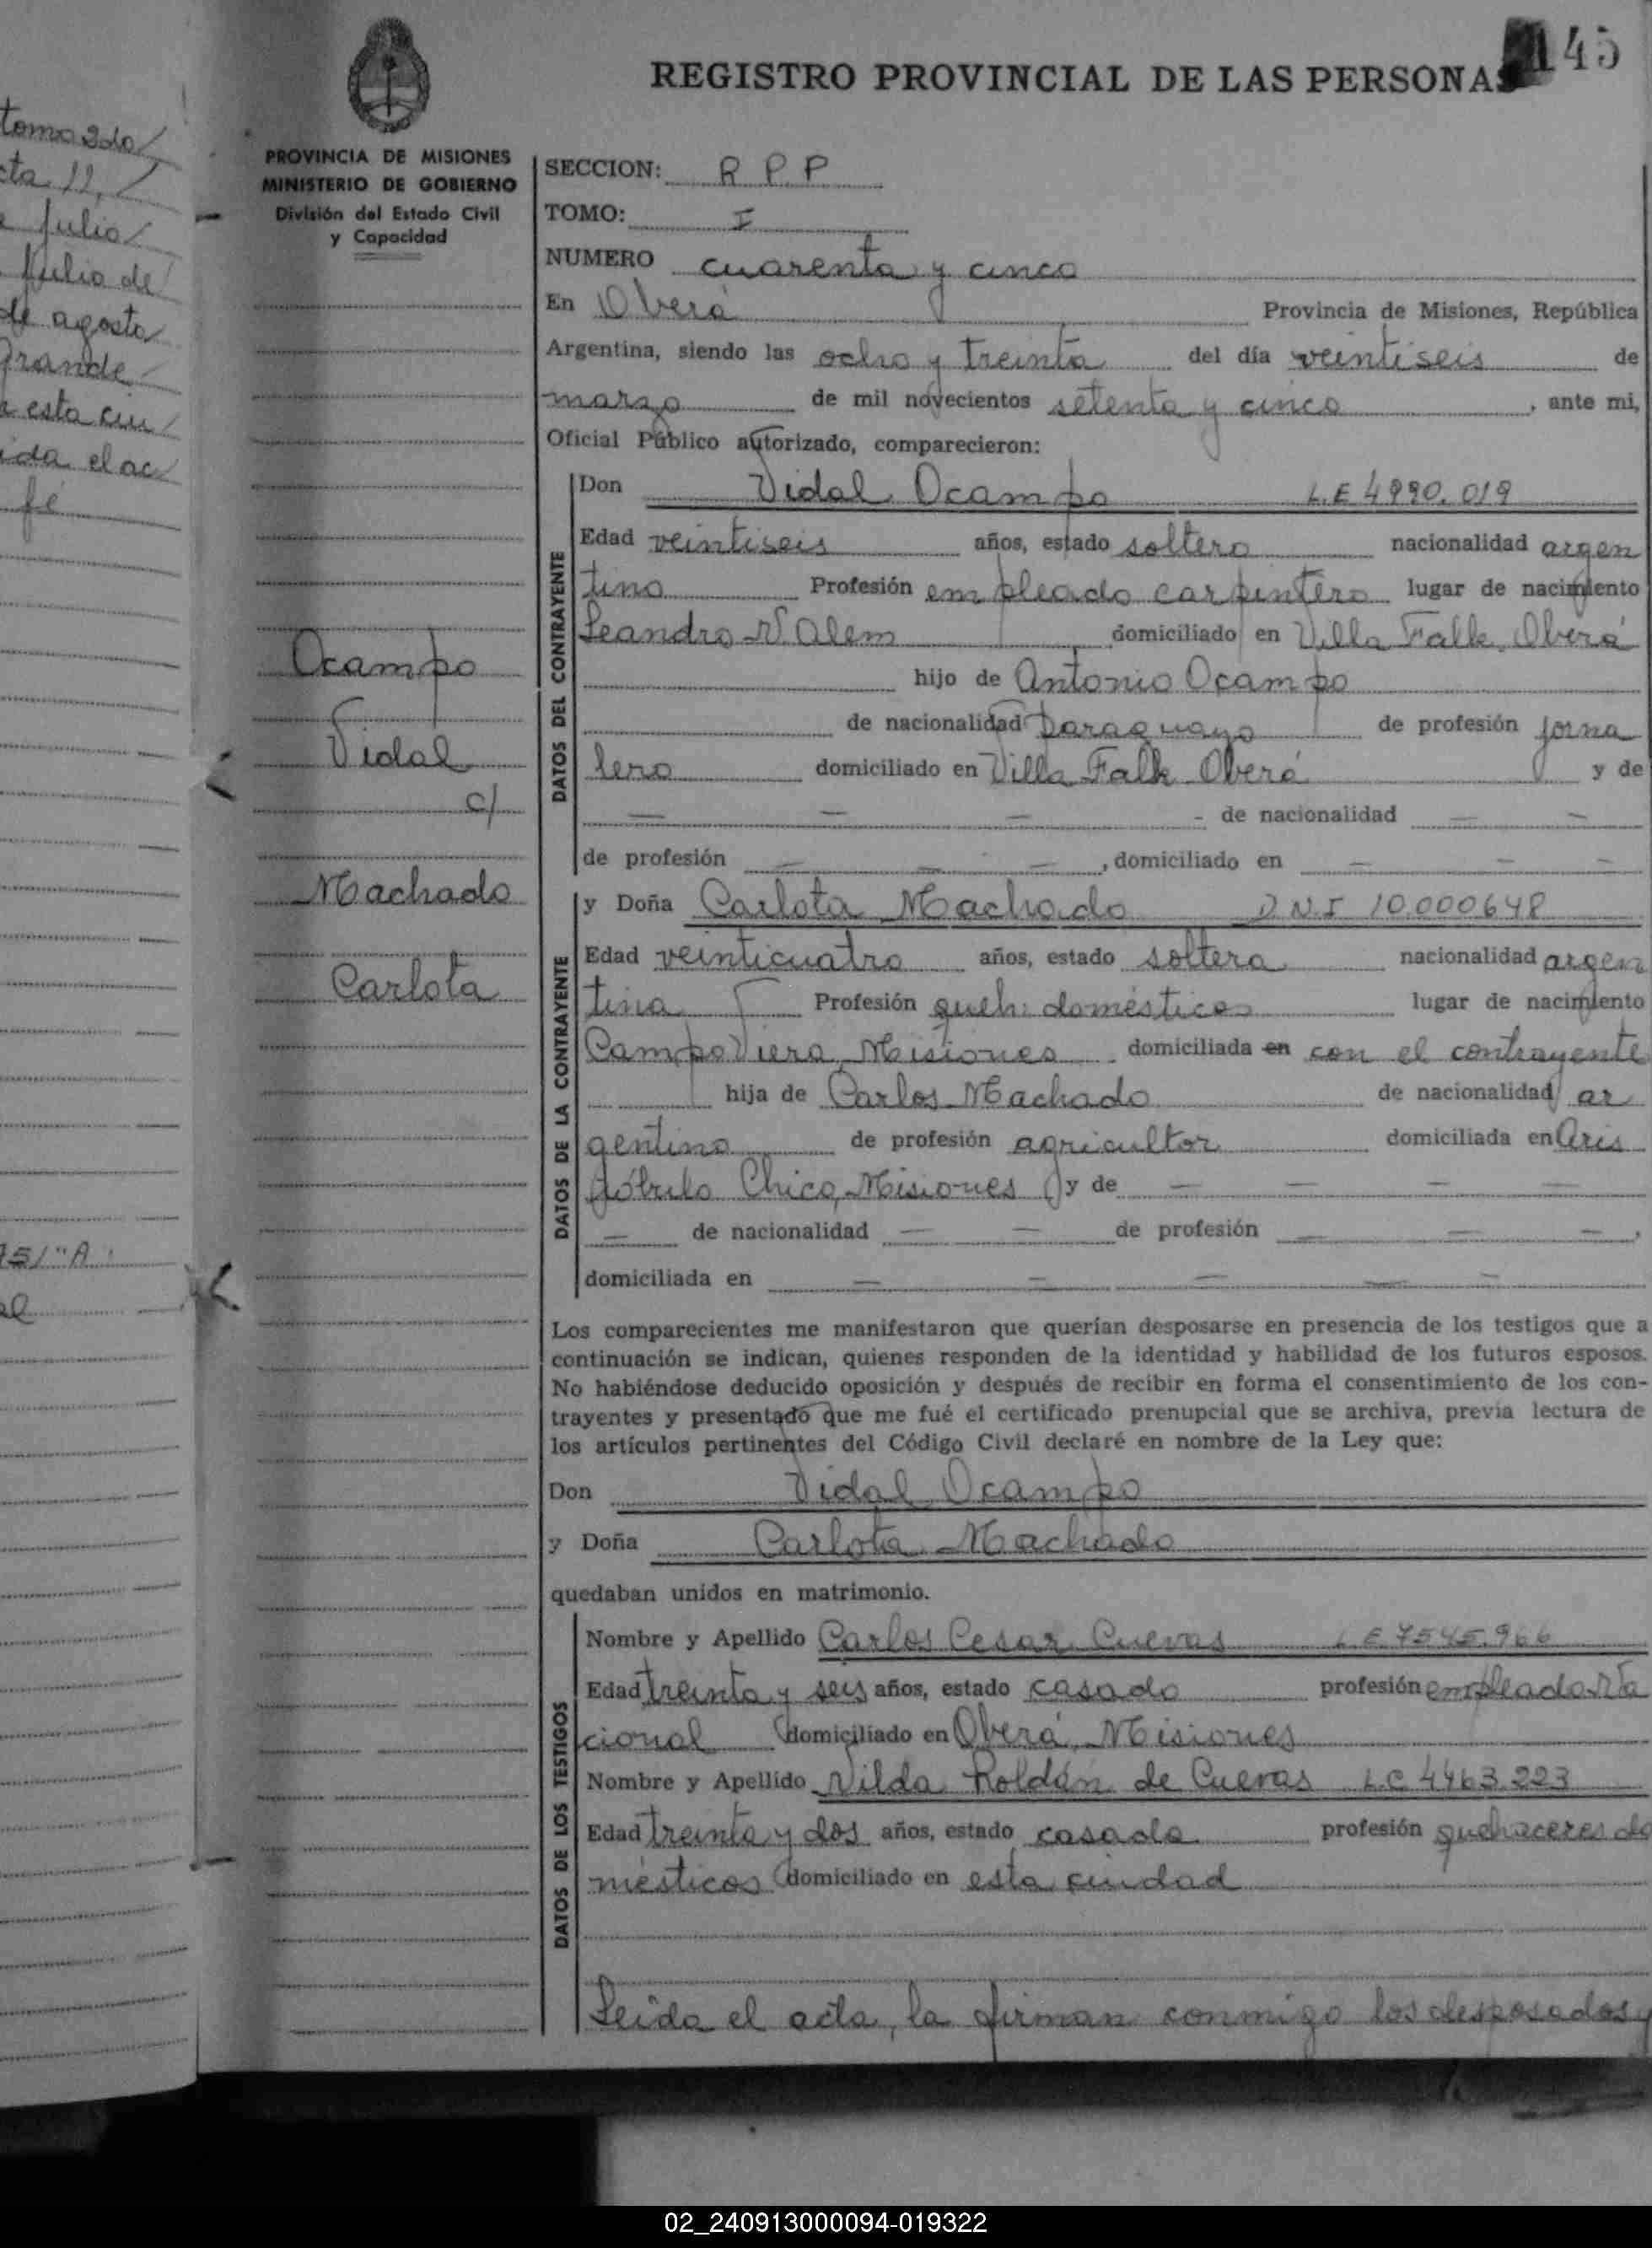 tomo 2do/
cta 11, /
e julio/
julio de/
de agosto/
Grande
a esta ciu/
ida el ac/
fé
75/"A"
al
145
REGISTRO PROVINCIAL DE LAS PERSONAS
PROVINCIA DE MISIONES
MINISTERIO DE GOBIERNO
División del Estado Civil
y Capacidad
Ocampo
Vidal
c/
Machado
Carlota
SECCION: R P P
TOMO: I
NUMERO cuarenta y cinco
En Oberá Provincia de Misiones, República
Argentina, siendo las ocho y treinta del día veintiseis de
marzo de mil novecientos setenta y cinco, ante mi,
Oficial Público autorizado, comparecieron:
DATOS DEL CONTRAYENTE
Don Vidal Ocampo L.E 4990.019
Edad veintiseis años, estado soltero nacionalidad argen
tino Profesión empleado carpintero lugar de nacimiento
Leandro N Alem domiciliado en Villa Falk, Oberá
hijo de Antonio Ocampo
de nacionalidad paraguayo de profesión jorna
lero domiciliado en Villa Falk Oberá y de
— — — - de nacionalidad — —
de profesión — — —, domiciliado en — — —
DATOS DE LA CONTRAYENTE
y Doña Carlota Machado D.N.I 10.000648
Edad veinticuatro años, estado soltera nacionalidad argen
tina Profesión queh. domésticos lugar de nacimiento
Campo Viera, Misiones domiciliada en con el contrayente
hija de Carlos Machado de nacionalidad ar
gentino de profesión agricultor domiciliada en Aris
tóbulo Chico, Misiones y de — — — —
— de nacionalidad — — de profesión — — —,
domiciliada en — — — — —
Los comparecientes me manifestaron que querían desposarse en presencia de los testigos que a
continuación se indican, quienes responden de la identidad y habilidad de los futuros esposos.
No habiéndose deducido oposición y después de recibir en forma el consentimiento de los con-
trayentes y presentado que me fué el certificado prenupcial que se archiva, previa lectura de
los artículos pertinentes del Código Civil declaré en nombre de la Ley que:
Don Vidal Ocampo
y Doña Carlota Machado
quedaban unidos en matrimonio.
DATOS DE LOS TESTIGOS
Nombre y Apellido Carlos Cesar Cuevas L.E 7545.966
Edad treinta y seis años, estado casado profesión empleado Na
cional domiciliado en Oberá, Misiones
Nombre y Apellido Nilda Roldán de Cuevas L.C 4463.223
Edad treinta y dos años, estado casada profesión quehaceres do
mésticos domiciliado en esta ciudad
Leida el acta, la firman conmigo los desposados y
02_240913000094-019322